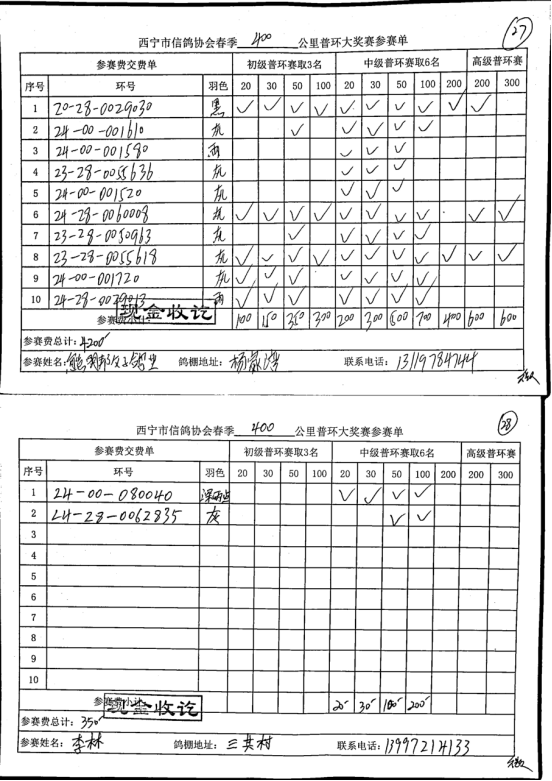 27
西宁市信鸽协会春季 400 公里普环大奖赛参赛单
参赛费交费单 初级普环赛取3名 中级普环赛取6名 高级普环赛
序号 环号 羽色 20 30 50 100 20 30 50 100 200 200 300
1 20-28-0029030 黑 ✓ ✓ ✓ ✓ ✓ ✓ ✓ ✓ ✓ ✓
2 24-00-001610 灰 ✓ ✓ ✓ ✓ ✓
3 24-00-001580 雨 ✓ ✓ ✓
4 23-28-0055636 灰 ✓ ✓ ✓
5 24-00-001520 灰 ✓ ✓ ✓
6 24-28-0060008 灰 ✓ ✓ ✓ ✓ ✓ ✓ ✓ ✓ ✓ ✓
7 23-28-0050963 灰 ✓ ✓ ✓ ✓ ✓
8 23-28-0055618 灰 ✓ ✓ ✓ ✓ ✓ ✓ ✓ ✓ ✓ ✓ ✓
9 24-00-001720 灰 ✓ ✓ ✓ ✓ ✓ ✓ ✓
10 24-28-0029013 雨 ✓ ✓ ✓ ✓ ✓ ✓ ✓
参赛费小计: 现金收讫 100 150 350 300 200 300 500 700 400 600 600
参赛费总计: 4200
参赛姓名: 鸽棚地址: 杨家湾 联系电话: 13119784744
28
西宁市信鸽协会春季 400 公里普环大奖赛参赛单
参赛费交费单 初级普环赛取3名 中级普环赛取6名 高级普环赛
序号 环号 羽色 20 30 50 100 20 30 50 100 200 200 300
1 24-00-080040 深雨点 ✓ ✓ ✓ ✓
2 24-28-0062835 灰 ✓ ✓
3
4
5
6
7
8
9
10
参赛费小计: 现金收讫 20 30 100 200
参赛费总计: 350
参赛姓名: 李林 鸽棚地址: 三其村 联系电话: 13997214133